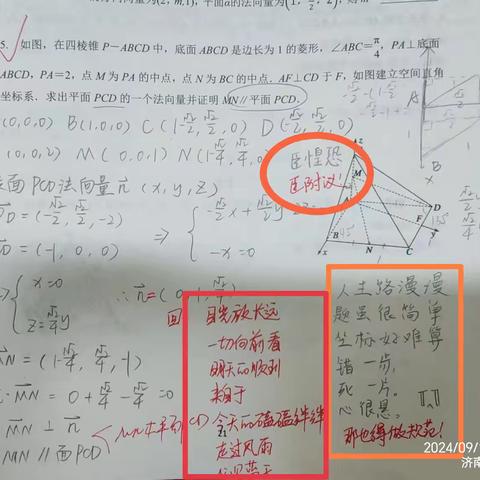 5. 如图，在四棱锥 P－ABCD 中，底面 ABCD 是边长为 1 的菱形，∠ABC=π/4，PA⊥底面
ABCD，PA=2，点 M 为 PA 的中点，点 N 为 BC 的中点．AF⊥CD 于 F，如图建立空间直角
坐标系．求出平面 PCD 的一个法向量并证明 MN∥平面 PCD．
(0,0,0) B(1,0,0) C(1-√2/2, √2/2, 0) D(-√2/2, √2/2, 0)
(0,0,2) M(0,0,1) N(1-√2/4, √2/4, 0)
臣惶恐
臣附议!
面PCD法向量n (x,y,z)
PD=(-√2/2, √2/2, -2)
-√2/2x+√2/2y-2z=0
=(-1,0,0)
-x=0
x=0
z=√2/4y
∴n=(0,1,√2/4)
MN=(1-√2/4, √2/4, -1)
·MN=0+√2/4-√2/4=0
MN⊥n
MN∥面PCD
目光放长远
一切向前看
明天的顺利
来自于
今天的磕磕绊绊
走过风雨
人生路漫漫
题虽很简单
坐标好难算
错一步，
死一片。
心很悬。
那也得做规范!
A
B
M
D
F
N
C
x
z
2024/09/
济南